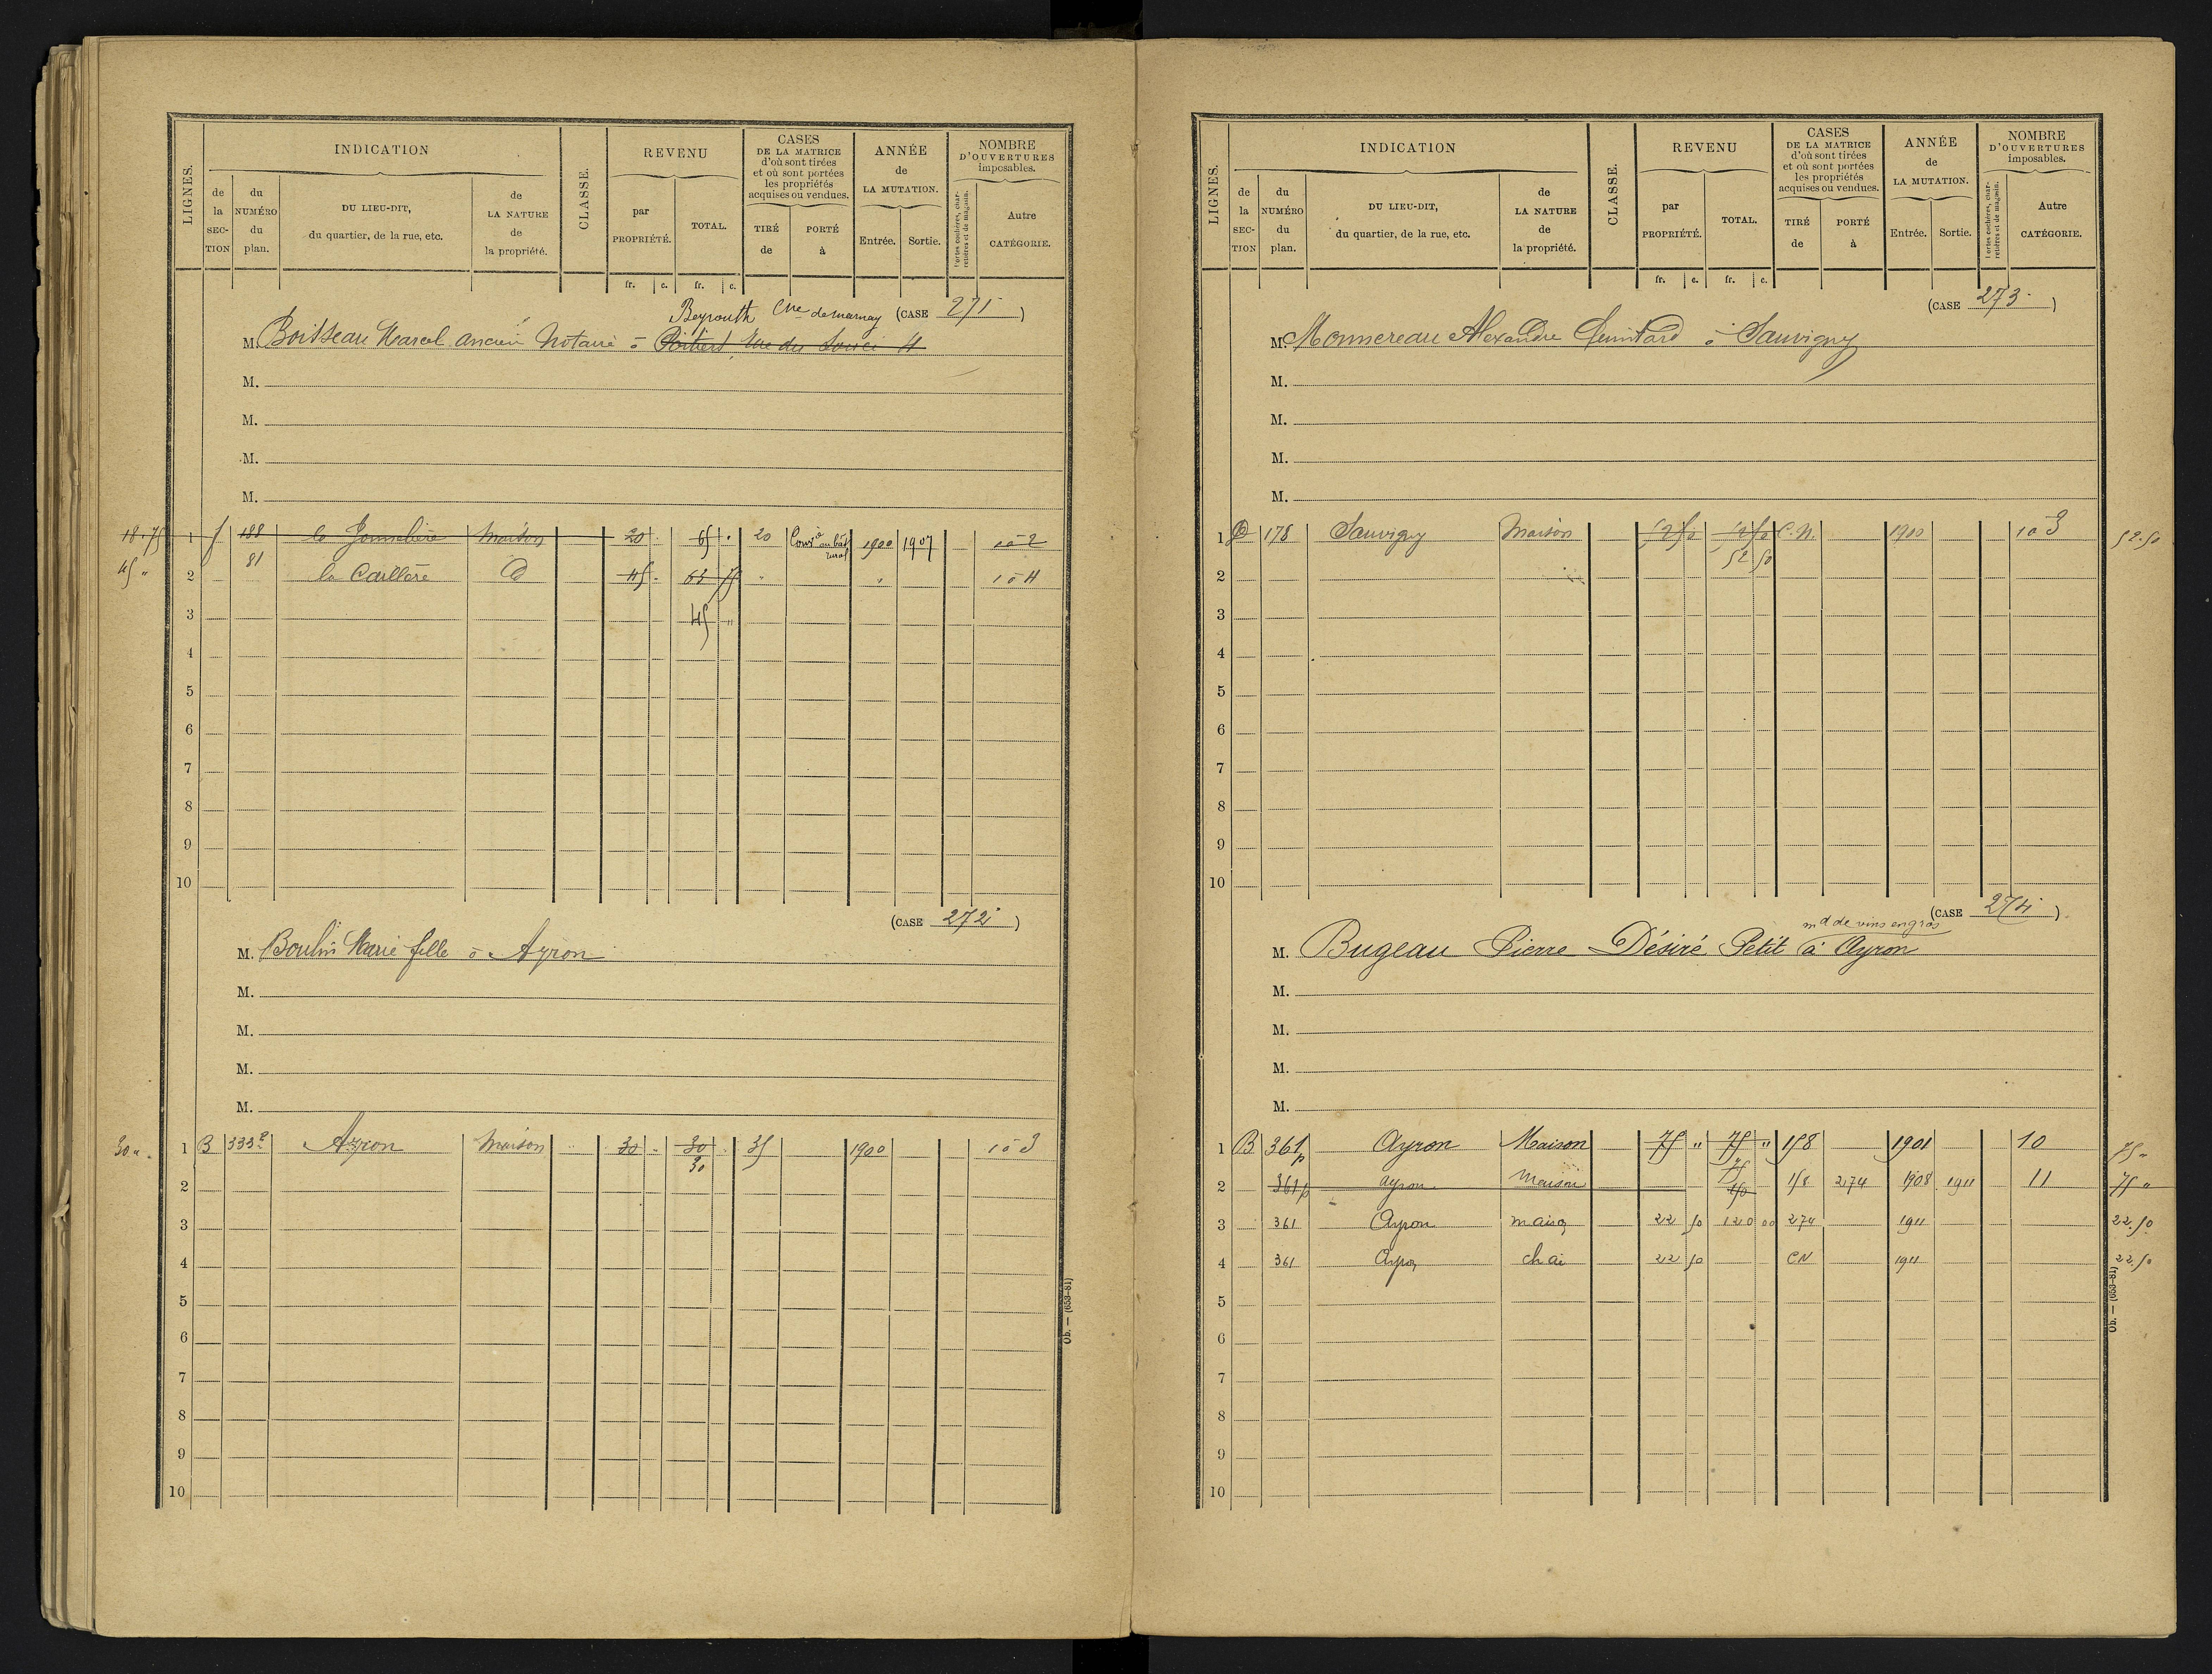 LIGNES.
INDICATION
de la SEC-TION
du NUMÉRO du plan.
DU LIEU-DIT, du quartier, de la rue, etc.
de LA NATURE de la propriété.
CLASSE.
REVENU
par PROPRIÉTÉ.
TOTAL.
CASES DE LA MATRICE d'où sont tirées et où sont portées les propriétés acquises ou vendues.
TIRÉ de
PORTÉ à
ANNÉE de LA MUTATION.
Entrée.
Sortie.
NOMBRE D'OUVERTURES imposables.
Portes cochères, charretières et de magasin.
Autre CATÉGORIE.
fr. c. fr. c.
Beyrouth Cne de marnay (CASE 271)
M. Boisseau Marcel ancien Notaire à Poitiers, rue des 4
M.
M.
M.
M.
18.75 1 f 188 la Jonnelière Maison 20 . 65 . 20 1900 1907 10 2
45 " 2 81 la Caillère d 45 . 63 75 " " 10 4
3 45 "
4
5
6
7
8
9
10
(CASE 272)
M. Boulin Marie fille à Ayron
M.
M.
M.
M.
30 " 1 B 333 Ayron Maison 30 . 30 . 35 1900 10 3
2 30
3
4
5
6
7
8
9
10
Ob. — (653-81)
LIGNES.
INDICATION
de la SEC-TION
du NUMÉRO du plan.
DU LIEU-DIT, du quartier, de la rue, etc.
de LA NATURE de la propriété.
CLASSE.
REVENU
par PROPRIÉTÉ.
TOTAL.
CASES DE LA MATRICE d'où sont tirées et où sont portées les propriétés acquises ou vendues.
TIRÉ de
PORTÉ à
ANNÉE de LA MUTATION.
Entrée.
Sortie.
NOMBRE D'OUVERTURES imposables.
Portes cochères, charretières et de magasin.
Autre CATÉGORIE.
fr. c. fr. c.
(CASE 273)
M. Monnereau Alexandre à Sauvigny
M.
M.
M.
M.
1 D 178 Sauvigny Maison 52 50 52 50 C.N. 1900 10 3 52.50
2 52 50
3
4
5
6
7
8
9
10
(CASE 274)
md de vins en gros
M. Bugeau Pierre Désiré Petit à Ayron
M.
M.
M.
M.
1 B 361p Ayron Maison 75 " 75 " 158 1901 10 75 "
2 361p Ayron Maison 75 150 158 274 1908 1911 11 75 "
3 361 Ayron maison 22 50 120 00 274 1911 22.50
4 361 Ayron chai 22 50 CN 1911 22.50
5
6
7
8
9
10
Ob. — (653-81)